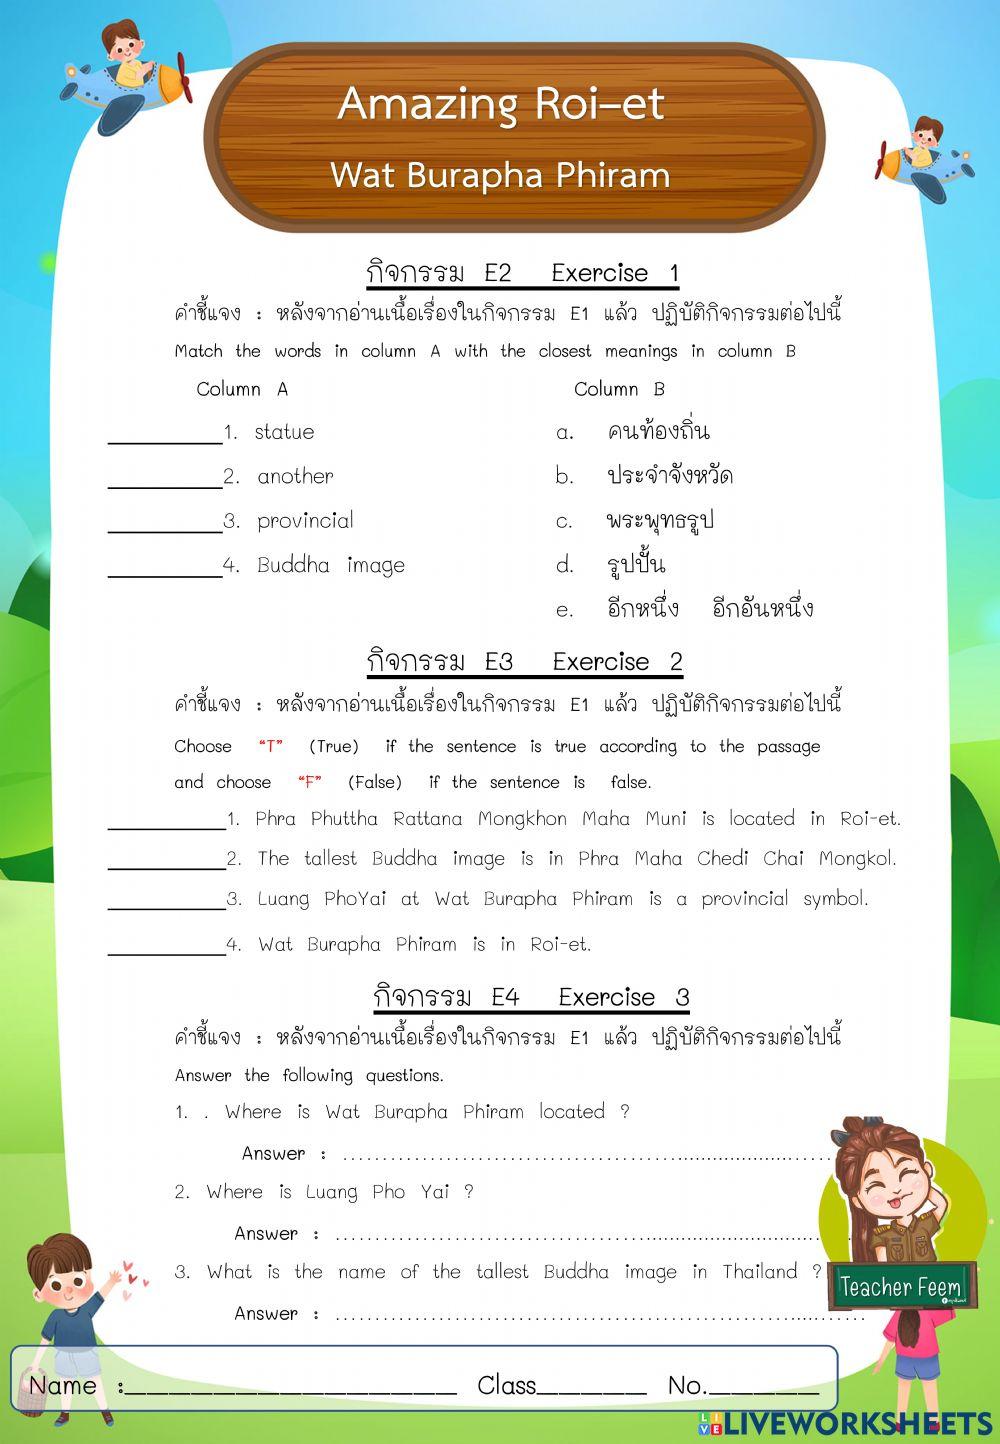 Amazing Roi-et
Wat Burapha Phiram
กิจกรรม E2 Exercise 1
คำชี้แจง : หลังจากอ่านเนื้อเรื่องในกิจกรรม E1 แล้ว ปฏิบัติกิจกรรมต่อไปนี้
Match the words in column A with the closest meanings in column B
Column A Column B
__________1. statue a. คนท้องถิ่น
__________2. another b. ประจำจังหวัด
__________3. provincial c. พระพุทธรูป
__________4. Buddha image d. รูปปั้น
e. อีกหนึ่ง อีกอันหนึ่ง
กิจกรรม E3 Exercise 2
คำชี้แจง : หลังจากอ่านเนื้อเรื่องในกิจกรรม E1 แล้ว ปฏิบัติกิจกรรมต่อไปนี้
Choose “T” (True) if the sentence is true according to the passage
and choose “F” (False) if the sentence is false.
__________1. Phra Phuttha Rattana Mongkhon Maha Muni is located in Roi-et.
__________2. The tallest Buddha image is in Phra Maha Chedi Chai Mongkol.
__________3. Luang PhoYai at Wat Burapha Phiram is a provincial symbol.
__________4. Wat Burapha Phiram is in Roi-et.
กิจกรรม E4 Exercise 3
คำชี้แจง : หลังจากอ่านเนื้อเรื่องในกิจกรรม E1 แล้ว ปฏิบัติกิจกรรมต่อไปนี้
Answer the following questions.
1. . Where is Wat Burapha Phiram located ?
Answer : ............................................................
2. Where is Luang Pho Yai ?
Answer : ............................................................
3. What is the name of the tallest Buddha image in Thailand ?
Answer : ............................................................
Teacher Feem
Name :_______________ Class_____ No._____
LIVE LIVEWORKSHEETS